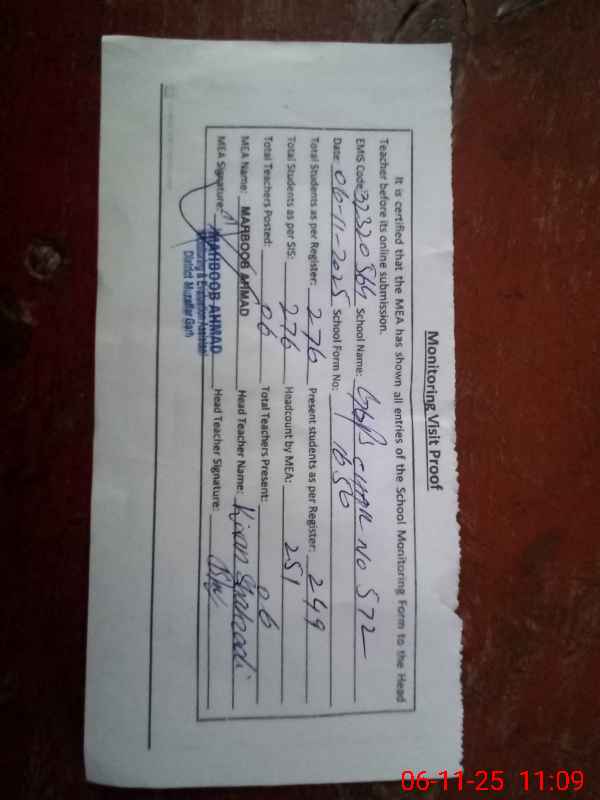 Monitoring Visit Proof
It is certified that the MEA has shown all entries of the School Monitoring Form to the Head
Teacher before its online submission.
EMIS Code: 32320864 School Name: CHAK NO 572
Date: 06-11-2025 School Form No: 1656
Total Students as per Register: 276 Present students as per Register: 249
Total Students as per SIS: 276 Headcount by MEA: 251
Total Teachers Posted: 06 Total Teachers Present: 06
MEA Name: MAHBOOB AHMAD Head Teacher Name: Kiran
MEA Signature: Head Teacher Signature:
MAHBOOB AHMAD
Monitoring & Evaluation Assistant
District Muzaffar Garh
06-11-25 11:09